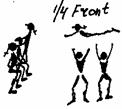 1/4 Front